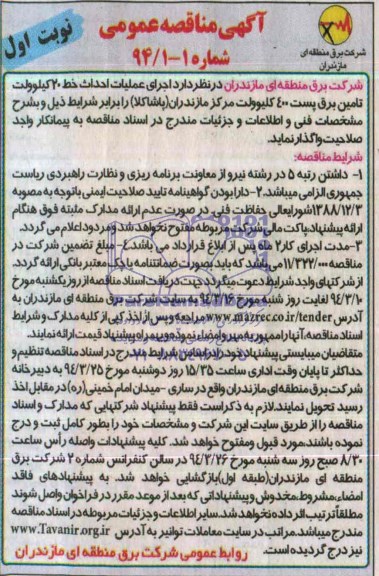 آگهی مناقصه عمومی
شماره ۱-۹۴/۱
نوبت اول
شرکت برق منطقه ای
مازندران
شرکت برق منطقه ای مازندران در نظر دارد اجرای عملیات احداث خط ۲۰ کیلوولت
تامین برق پست ۴۰۰ کلیوولت مرکز مازندران (پاشاکلا) را برابر شرایط ذیل و بشرح
مشخصات فنی و اطلاعات و جزئیات مندرج در اسناد مناقصه به پیمانکار واجد
صلاحیت واگذار نماید.
شرایط مناقصه:
۱- داشتن رتبه ۵ در رشته نیرو از معاونت برنامه ریزی و نظارت راهبردی ریاست
جمهوری الزامی میباشد. ۲- دارا بودن گواهینامه تایید صلاحیت ایمنی باتوجه به مصوبه
۱۳۸۸/۱۲/۳ شورایعالی حفاظت فنی در صورت عدم ارائه مدارک مثبته فوق هنگام
ارائه پیشنهاد، پاکت مالی شرکت مربوطه مفتوح نخواهد شد و مردود اعلام می گردد.
۳- مدت اجرای کار ۲ ماه پس از ابلاغ قرارداد می باشد ۴- مبلغ تضمین شرکت در
مناقصه ۱۱/۳۲۲/۰۰۰ می باشد که باید بصورت ضمانتنامه یا چک معتبر بانکی ارائه گردد.
از شرکتهای واجد شرایط دعوت میگردد جهت دریافت اسناد مناقصه از روز یکشنبه مورخ
۹۴/۳/۱۰ لغایت روز شنبه مورخ ۹۴/۳/۱۶ به سایت شرکت برق منطقه ای مازندران به
آدرس www.mazrec.co.ir/tender مراجعه و پس از اخذ کپی از کلیه مدارک و شرایط
اسناد مناقصه، آنها را ممهور به مهر و امضاء نموده و به همراه پیشنهاد قیمت ارائه نمایند.
متقاضیان میبایستی پیشنهاد خود را بر اساس شرایط مندرج در اسناد مناقصه تنظیم و
حداکثر تا پایان وقت اداری ساعت ۱۵/۳۵ روز دوشنبه مورخ ۹۴/۳/۲۵ به دبیرخانه
شرکت برق منطقه ای مازندران واقع در ساری - میدان امام خمینی (ره) در مقابل اخذ
رسید تحویل نمایند. لازم به ذکر است فقط پیشنهاد شرکتهایی که مدارک و اسناد
مناقصه را از طریق سایت این شرکت و مشخصات خود را بطور کامل ثبت و درج
نموده باشند، مورد قبول و مفتوح خواهد شد. کلیه پیشنهادات واصله رأس ساعت
۸/۳۰ صبح روز سه شنبه مورخ ۹۴/۳/۲۶ در سالن کنفرانس شماره ۲ شرکت برق
منطقه ای مازندران (طبقه اول) بازگشایی خواهد شد. به پیشنهادهای فاقد
امضاء، مشروط، مخدوش و پیشنهاداتی که بعد از موعد مقرر در فراخوان واصل شوند
مطلقاً ترتیب اثر داده نخواهد شد. سایر اطلاعات و جزئیات مربوطه در اسناد مناقصه
مندرج میباشد. مراتب در سایت معاملات توانیر به آدرس www.Tavanir.org.ir
نیز درج گردیده است.
روابط عمومی شرکت برق منطقه ای مازندران